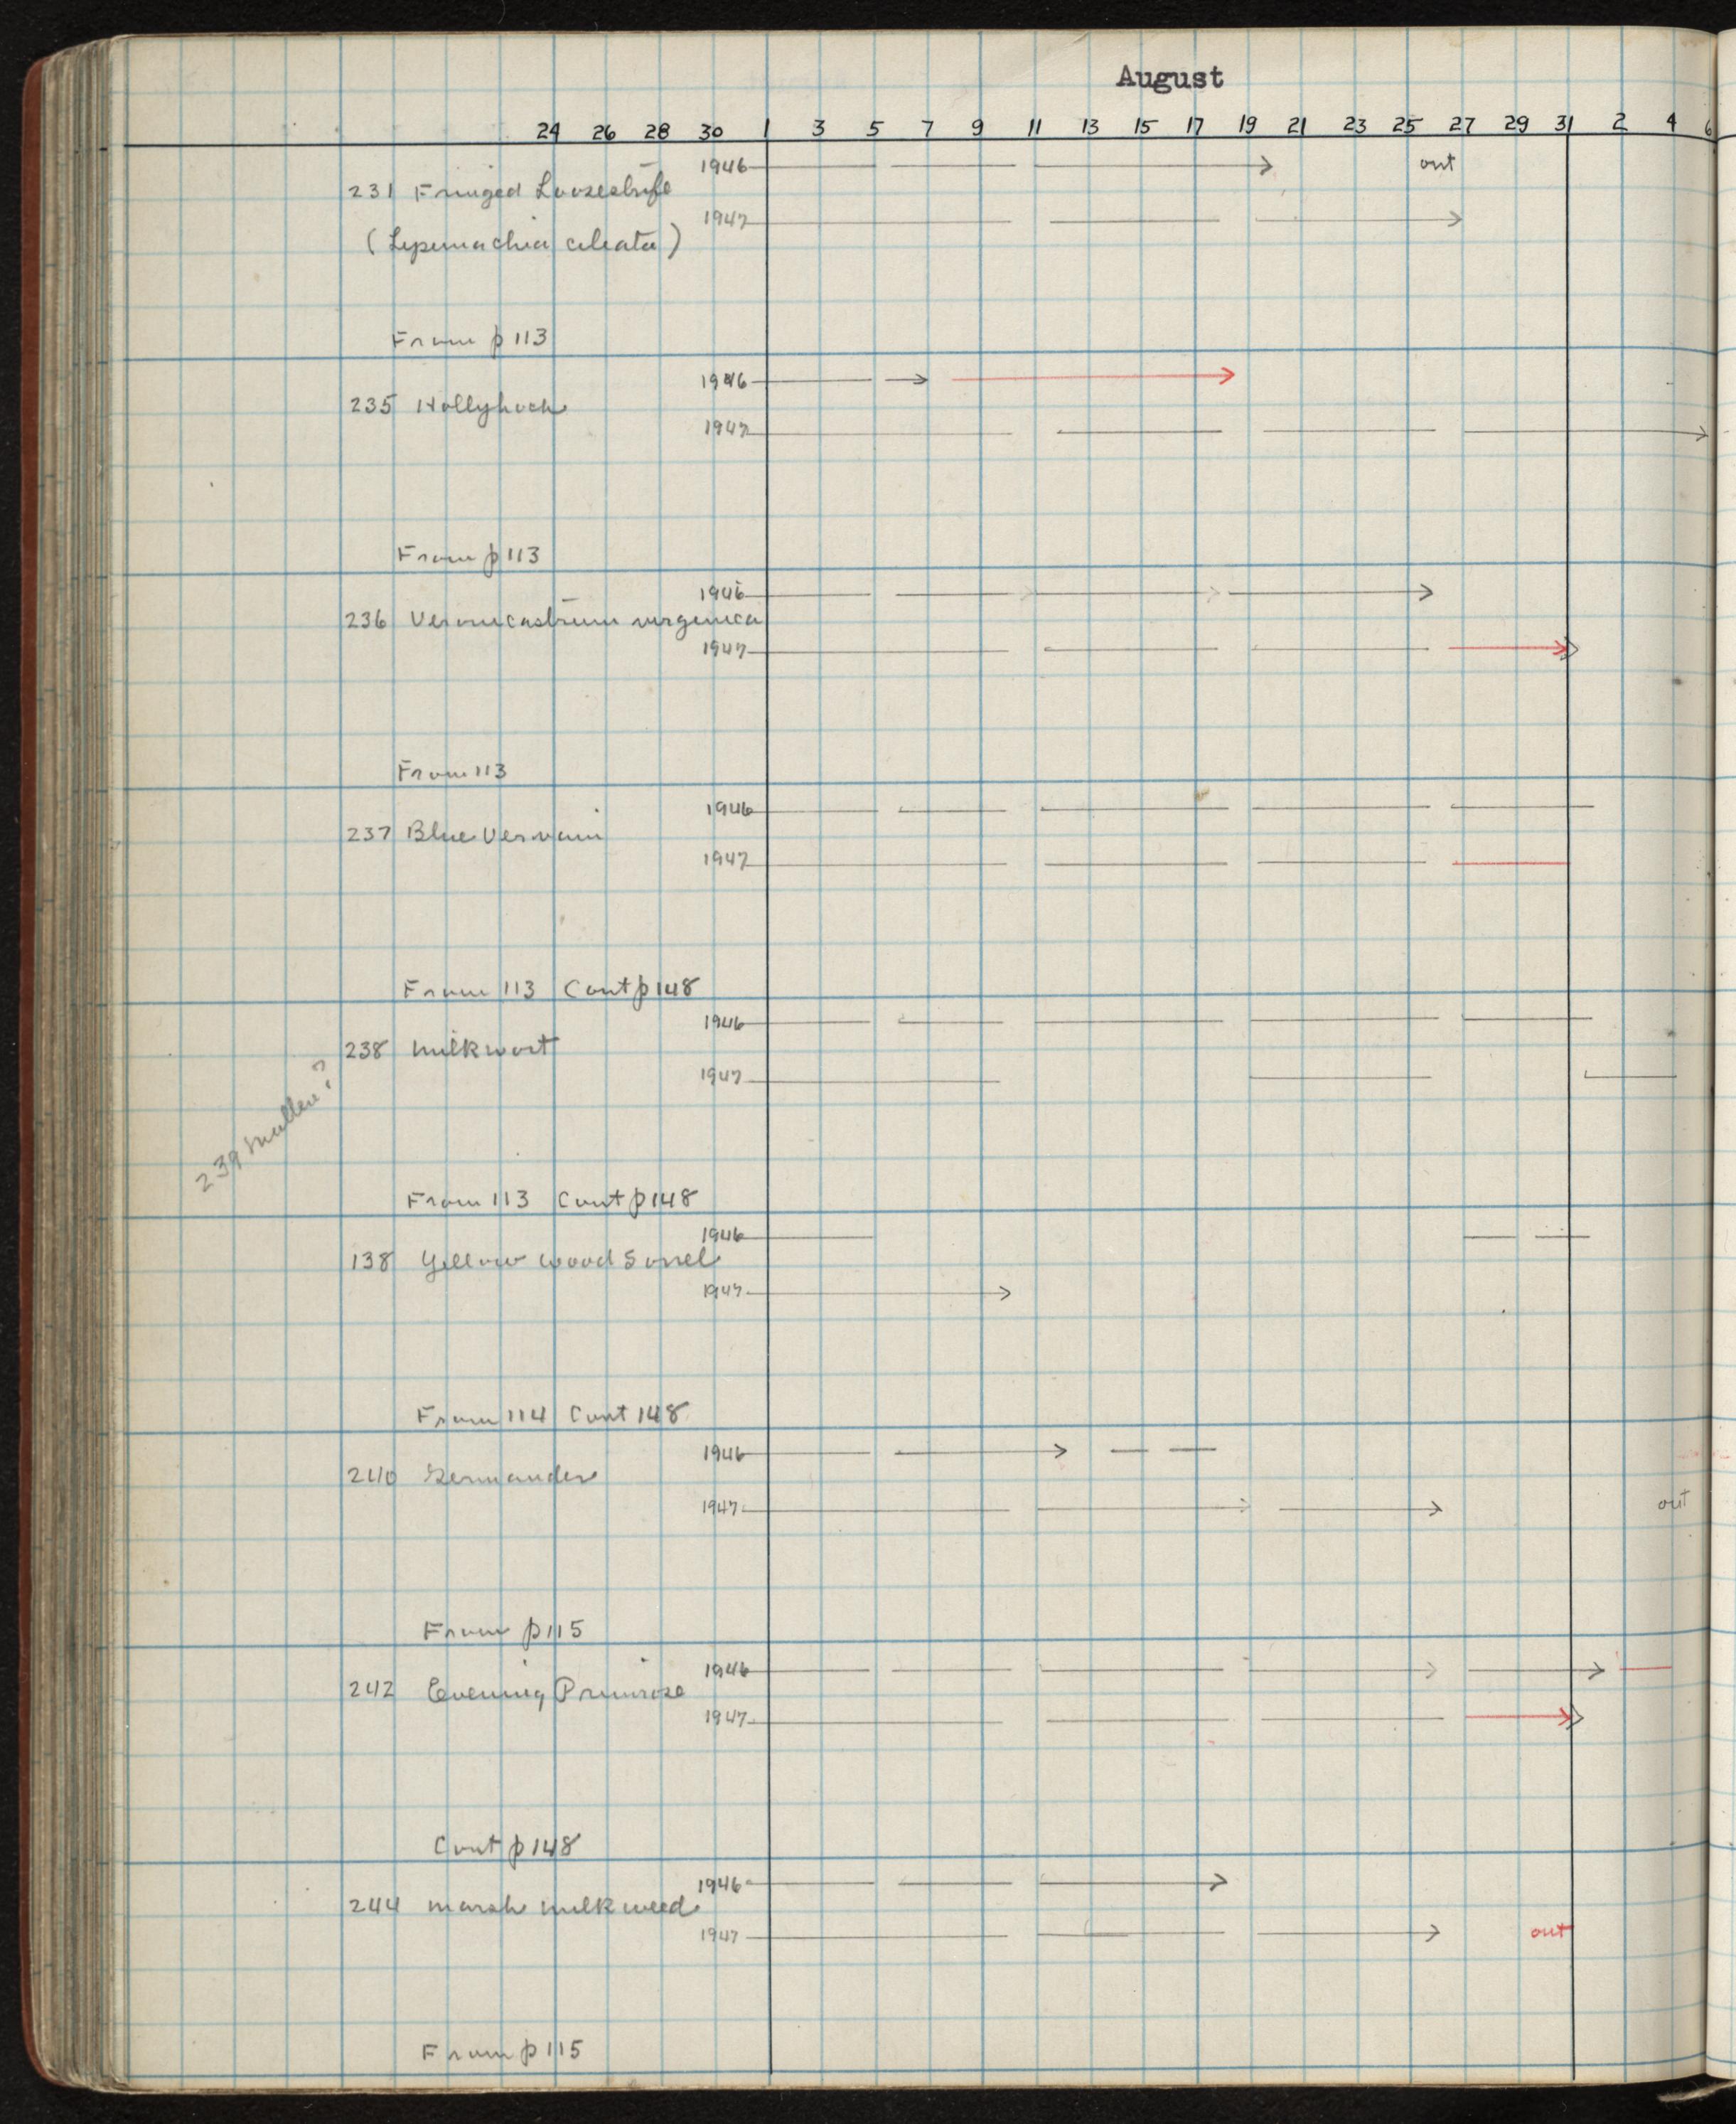 August
24 26 28 30 1 3 5 7 9 11 13 15 17 19 21 23 25 27 29 31 2 4 6
1946 out
231 Fringed Loosestrife
1947
(Lysimachia ciliata)
From p 113
1946
235 Hollyhock
1947
From p 113
1946
236 Veronicastrum virginica
1947
From 113
1946
237 Blue Vervain
1947
From 113 Cont p 148
1946
238 Milkwort
1947
239 Mullen?
From 113 Cont p 148
1946
138 Yellow Wood Sorrel
1947
From 114 Cont 148
1946
240 Germander
1947 out
From p 115
1946
242 Evening Primrose
1947
Cont p 148
1946
244 Marsh milkweed
1947 out
From p 115